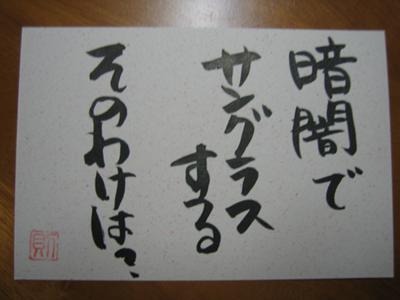 暗闇で
サングラス
する
そのわけは?